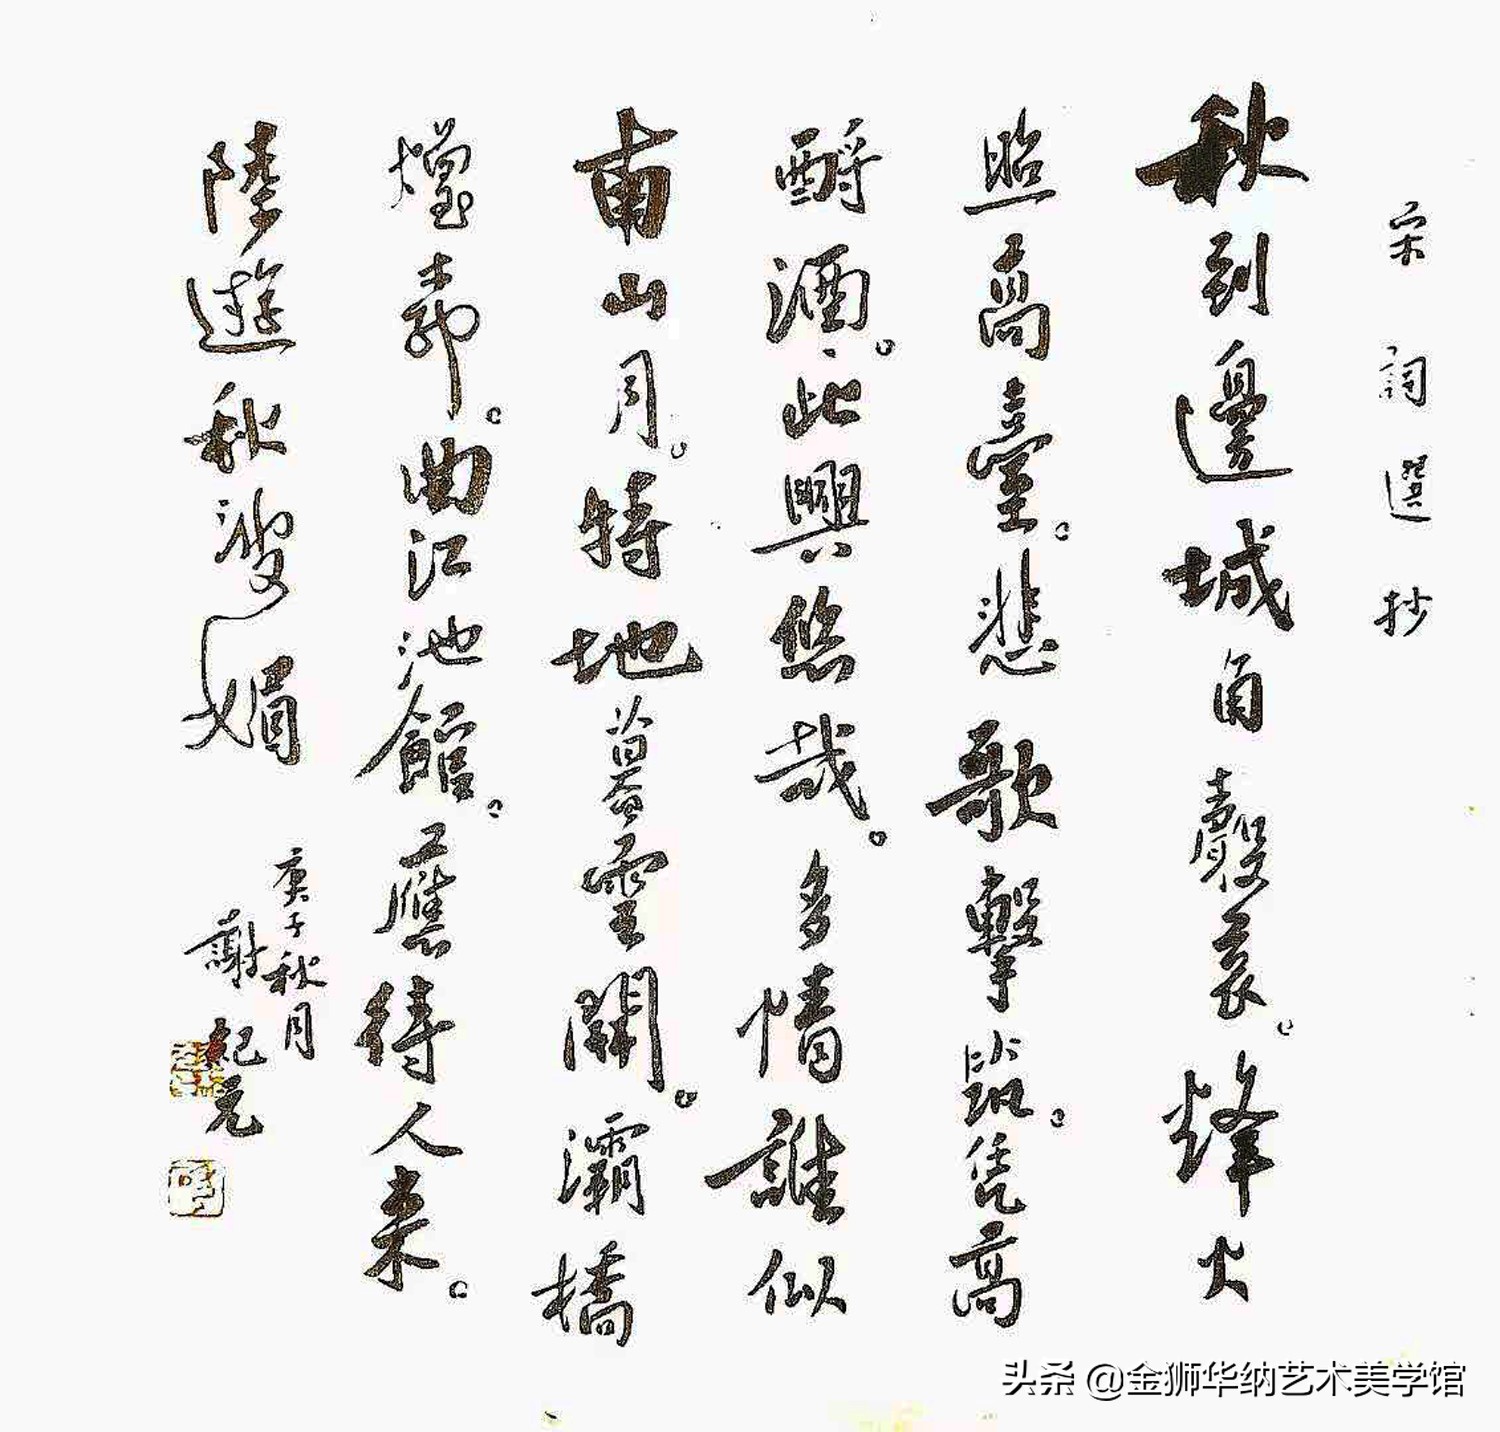 宋詞選抄
秋到邊城角聲哀。烽火
照高臺。悲歌擊筑。凭高
酹酒。此興悠哉。多情誰似
南山月。特地暮雲開。灞橋
煙柳。曲江池館。應待人来。
陸遊秋波媚
庚子秋月
謝紀元
头条 @金狮华纳艺术美学馆